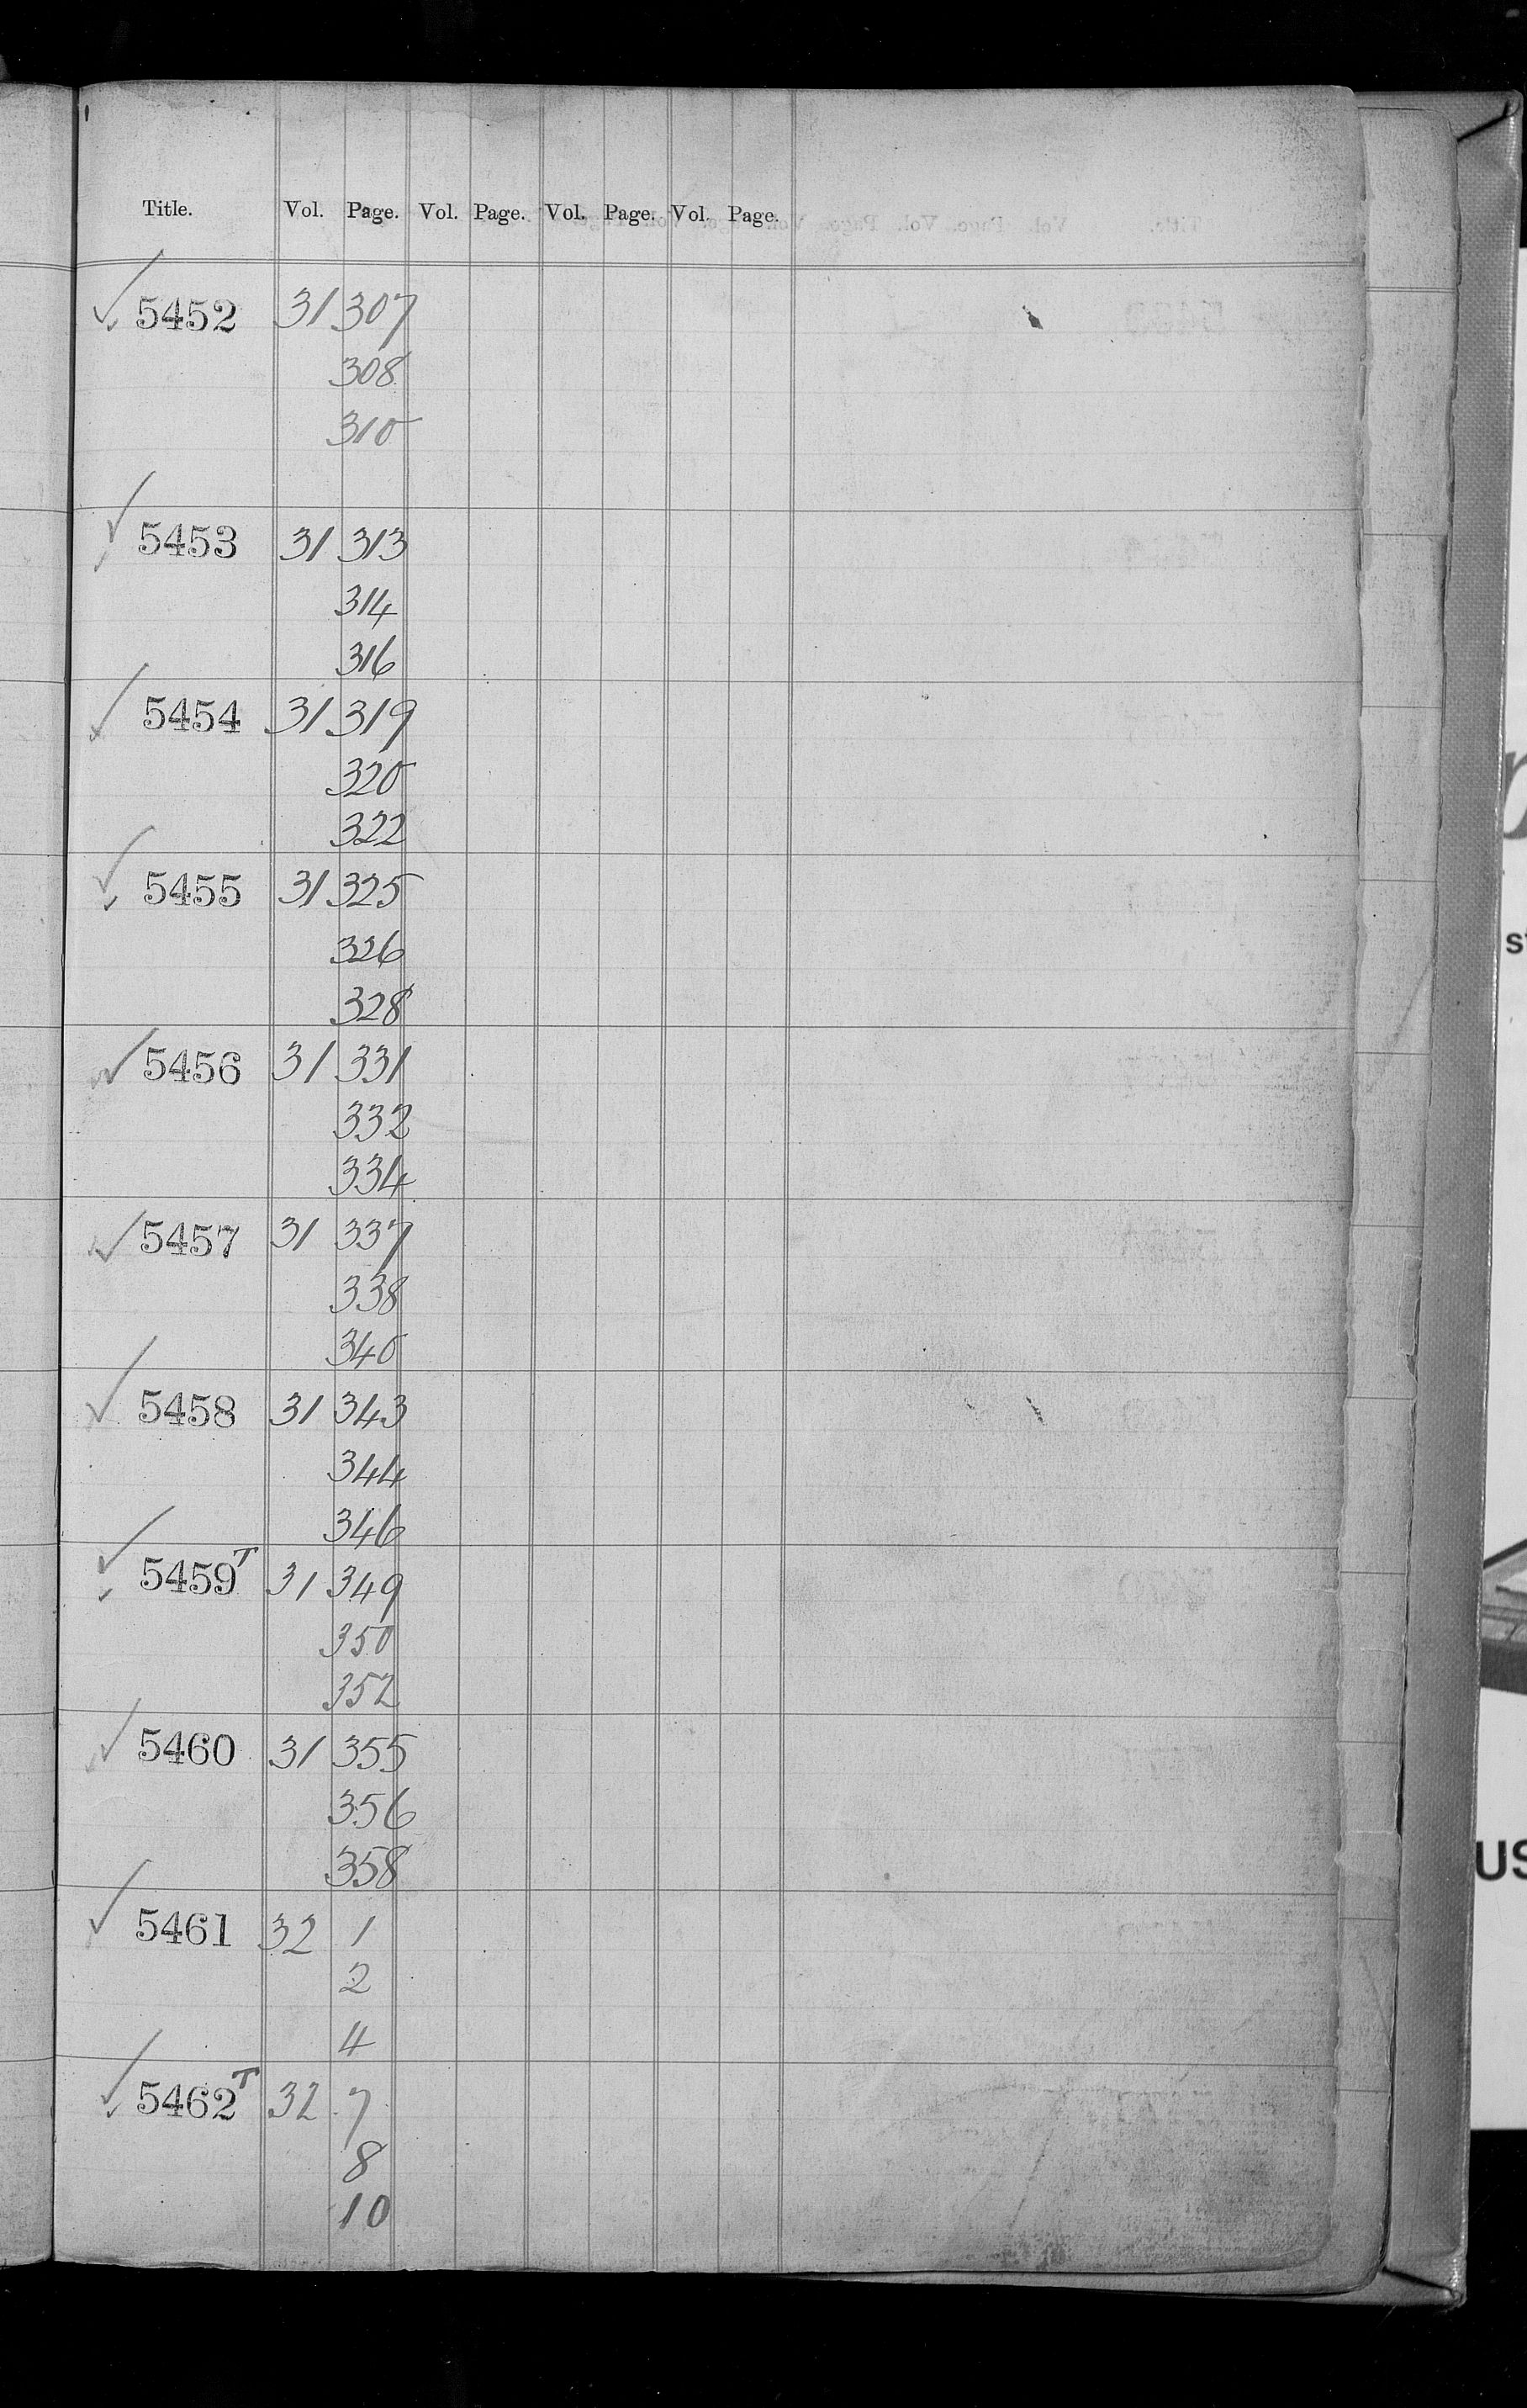 Title. Vol. Page. Vol. Page. Vol. Page. Vol. Page.
✓ 5452 31 307
308
310
✓ 5453 31 313
314
316
✓ 5454 31 319
320
322
✓ 5455 31 325
326
328
✓ 5456 31 331
332
334
✓ 5457 31 337
338
340
✓ 5458 31 343
344
346
✓ 5459T 31 349
350
352
✓ 5460 31 355
356
358
✓ 5461 32 1
2
4
✓ 5462T 32 7
8
10